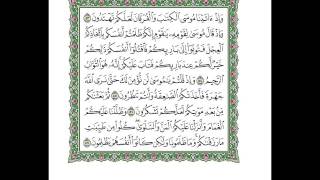 وَإِذْ ءَاتَيْنَا مُوسَى ٱلْكِتَٰبَ وَٱلْفُرْقَانَ لَعَلَّكُمْ تَهْتَدُونَ ٥٣
وَإِذْ قَالَ مُوسَىٰ لِقَوْمِهِۦ يَٰقَوْمِ إِنَّكُمْ ظَلَمْتُمْ أَنفُسَكُم بِٱتِّخَاذِكُمُ
ٱلْعِجْلَ فَتُوبُوٓا۟ إِلَىٰ بَارِئِكُمْ فَٱقْتُلُوٓا۟ أَنفُسَكُمْ ذَٰلِكُمْ
خَيْرٌ لَّكُمْ عِندَ بَارِئِكُمْ فَتَابَ عَلَيْكُمْ إِنَّهُۥ هُوَ ٱلتَّوَّابُ
ٱلرَّحِيمُ ٥٤ وَإِذْ قُلْتُمْ يَٰمُوسَىٰ لَن نُّؤْمِنَ لَكَ حَتَّىٰ نَرَى ٱللَّهَ
جَهْرَةً فَأَخَذَتْكُمُ ٱلصَّٰعِقَةُ وَأَنتُمْ تَنظُرُونَ ٥٥ ثُمَّ بَعَثْنَٰكُم
مِّنۢ بَعْدِ مَوْتِكُمْ لَعَلَّكُمْ تَشْكُرُونَ ٥٦ وَظَلَّلْنَا عَلَيْكُمُ
ٱلْغَمَامَ وَأَنزَلْنَا عَلَيْكُمُ ٱلْمَنَّ وَٱلسَّلْوَىٰ كُلُوا۟ مِن طَيِّبَٰتِ
مَا رَزَقْنَٰكُمْ وَمَا ظَلَمُونَا وَلَٰكِن كَانُوٓا۟ أَنفُسَهُمْ يَظْلِمُونَ ٥٧